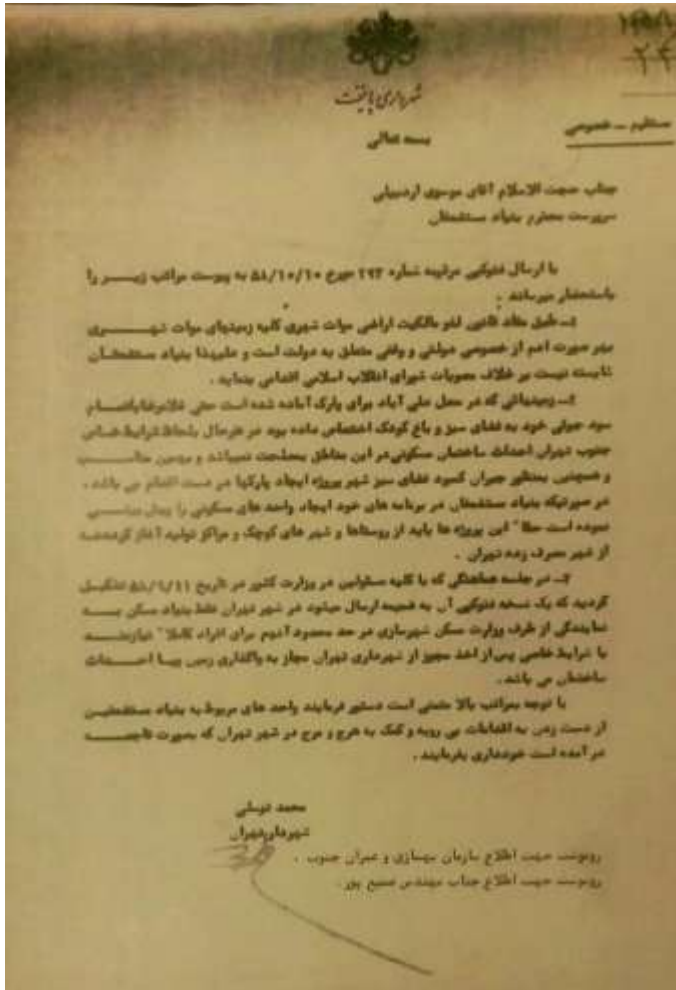 شهرداری پایتخت
بسمه تعالی
مستقیم ــ خصوصی
جناب حجت الاسلام آقای موسوی اردبیلی
سرپرست محترم بنیاد مستضعفان
با ارسال فتوکپی مرقومه شماره ۲۹۳ مورخ ۵۸/۱۰/۱۰ به پیوست مراتب زیر را
باستحضار میرساند .
۱ــ طبق مفاد قانون لغو مالکیت اراضی موات شهری کلیه زمینهای موات شهری
بهر صورت اعم از خصوصی دولتی و وقفی متعلق به دولت است و علیهذا بنیاد مستضعفان
شایسته نیست بر خلاف مصوبات شورای انقلاب اسلامی اقدامی بنماید .
۲ــ زمینهائی که در محل علی آباد برای پارک آماده شده است حتی
سود جوئی خود به فضای سبز و باغ کودک اختصاص داده بود در هرحال بلحاظ شرایط خاص
جنوب تهران احداث ساختمان مسکونی در این مناطق بمصلحت نمیباشد و بهمین مناسبت
و همچنین بمنظور جبران کمبود فضای سبز شهر پروژه ایجاد پارکها در دست اقدام می باشد .
در صورتیکه بنیاد مستضعفان در برنامه های خود ایجاد واحد های مسکونی را پیش بینی
نموده است حقا" این پروژه ها باید از روستاها و شهر های کوچک و مراکز تولید آغاز گردد نه
از شهر مصرف زده تهران .
۳ــ در جلسه هماهنگی که با کلیه مسئولین در وزارت کشور در تاریخ تشکیل
گردید که یک نسخه فتوکپی آن به ضمیمه ارسال میشود در شهر تهران فقط بنیاد مسکن به
نمایندگی از طرف وزارت مسکن شهرسازی در حد محدود آنهم برای افراد کاملا" نیازمند
با شرایط خاصی پس از اخذ مجوز از شهرداری تهران مجاز به واگذاری زمین و یا احداث
ساختمان می باشد .
با توجه بمراتب بالا متمنی است دستور فرمایند واحد های مربوط به بنیاد مستضعفین
از دست زدن به اقدامات بی رویه و کمک به هرج و مرج در شهر تهران که بصورت فاجعه
در آمده است خودداری بفرمایند .
محمد توسلی
شهردار تهران
رونوشت جهت اطلاع سازمان بهسازی و عمران جنوب .
رونوشت جهت اطلاع جناب مهندس صنیع پور .